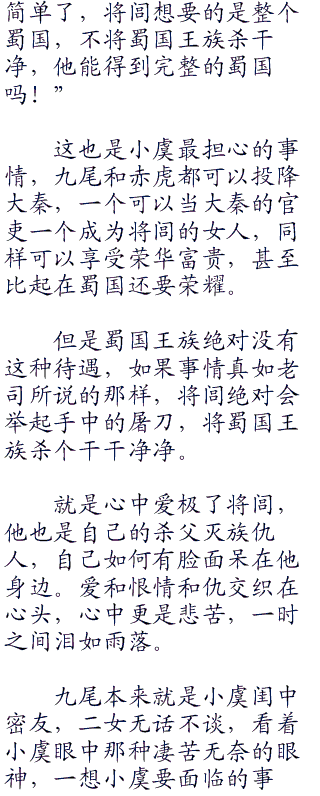 简单了，将闾想要的是整个
蜀国，不将蜀国王族杀干
净，他能得到完整的蜀国
吗！”
这也是小虞最担心的事
情，九尾和赤虎都可以投降
大秦，一个可以当大秦的官
吏一个成为将闾的女人，同
样可以享受荣华富贵，甚至
比起在蜀国还要荣耀。
但是蜀国王族绝对没有
这种待遇，如果事情真如老
司所说的那样，将闾绝对会
举起手中的屠刀，将蜀国王
族杀个干干净净。
就是心中爱极了将闾，
他也是自己的杀父灭族仇
人，自己如何有脸面呆在他
身边。爱和恨情和仇交织在
心头，心中更是悲苦，一时
之间泪如雨落。
九尾本来就是小虞闺中
密友，二女无话不谈，看着
小虞眼中那种凄苦无奈的眼
神，一想小虞要面临的事